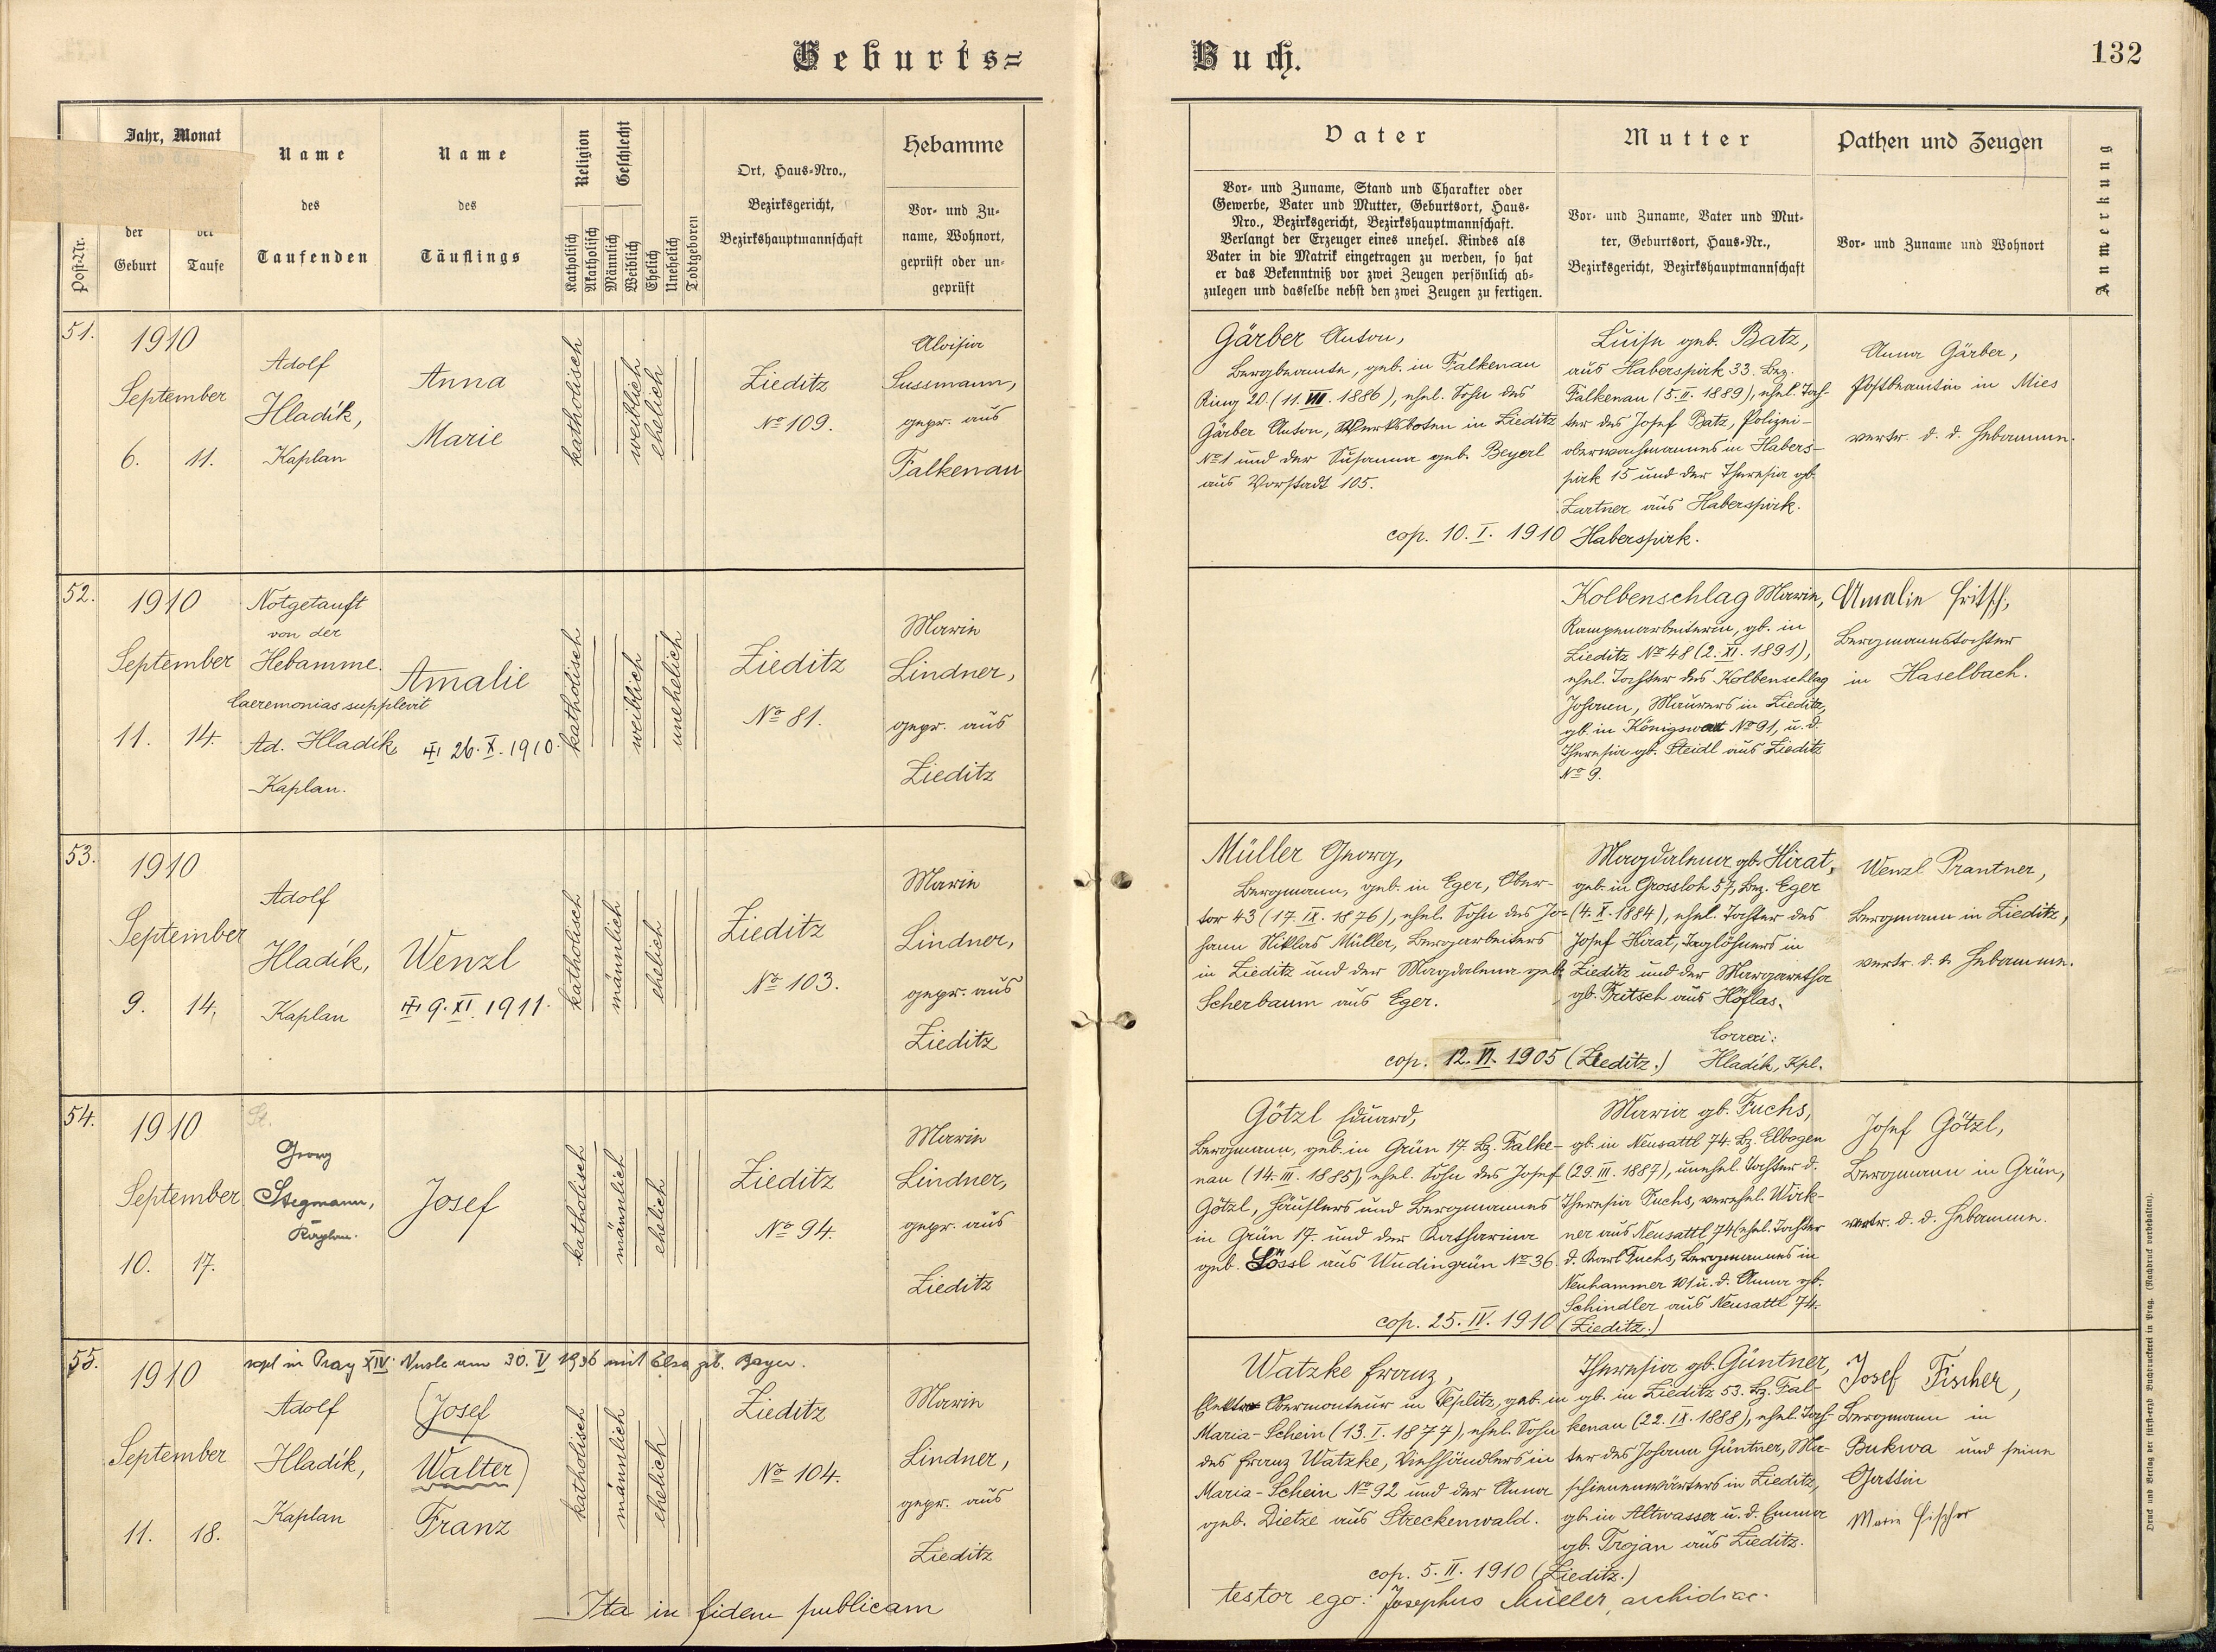 Geburts=
Buch.
132
Post-Nr.
Jahr, Monat
der
Geburt
Taufe
Name
des
Taufenden
Name
des
Täuflings
Religion
Katholisch
Akatholisch
Geschlecht
Männlich
Weiblich
Ehelich
Unehelich
Todtgeboren
Ort, Haus-Nro.,
Bezirksgericht,
Bezirkshauptmannschaft
Hebamme
Vor- und Zu-
name, Wohnort,
geprüft oder un-
geprüft
Vater
Vor- und Zuname, Stand und Charakter oder
Gewerbe, Vater und Mutter, Geburtsort, Haus-
Nro., Bezirksgericht, Bezirkshauptmannschaft.
Verlangt der Erzeuger eines unehel. Kindes als
Vater in die Matrik eingetragen zu werden, so hat
er das Bekenntniß vor zwei Zeugen persönlich ab-
zulegen und dasselbe nebst den zwei Zeugen zu fertigen.
Mutter
Vor- und Zuname, Vater und Mut-
ter, Geburtsort, Haus-Nr.,
Bezirksgericht, Bezirkshauptmannschaft
Pathen und Zeugen
Vor- und Zuname und Wohnort
Anmerkung
51.
1910
September
6. 11.
Adolf
Hladík,
Kaplan
Anna
Marie
katholisch
weiblich
ehelich
Zieditz
No 109.
Aloisia
Sussmann,
gepr. aus
Falkenau
Gärber Anton,
Bergbeamte, geb. in Falkenau
Ring 20. (11. VII. 1886), ehel. Sohn des
Gärber Anton, Werksboten in Zieditz
No 1 und der Susanna geb. Beyerl
aus Vorstadt 105.
cop. 10. I. 1910 Haberspirk.
Luise geb. Batz,
aus Haberspirk 33. Bez.
Falkenau (5. II. 1889), ehel. Toch-
ter des Josef Batz, Polizei-
oberwachmannes in Habers-
pirk 15 und der Theresia gb.
Zartner aus Haberspirk.
Anna Gärber,
Postbeamtin in Mies
vertr. d. d. Hebamme.
52.
1910
September
11. 14.
Notgetauft
von der
Hebamme.
Caeremonias supplevit
Ad. Hladík,
Kaplan.
Amalie
26. X. 1910.
katholisch
weiblich
unehelich
Zieditz
No 81.
Marie
Lindner,
gepr. aus
Zieditz
Kolbenschlag Marie,
Rampenarbeiterin, gb. in
Zieditz No 48 (2. XI. 1891),
ehel. Tochter des Kolbenschlag
Johann, Maurers in Zieditz,
gb. in Königswart No 91, u. d.
Theresia gb. Steidl aus Zieditz
No 9.
Amalie Fritsch,
Bergmannstochter
in Haselbach.
53.
1910
September
9. 14.
Adolf
Hladík,
Kaplan
Wenzl
9. XI. 1911.
katholisch
männlich
ehelich
Zieditz
No 103.
Marie
Lindner,
gepr. aus
Zieditz
Müller Georg,
Bergmann, geb. in Eger, Ober-
tor 43 (17. IX. 1876), ehel. Sohn des Jo-
hann Niklas Müller, Bergarbeiters
in Zieditz und der Magdalena geb.
Scherbaum aus Eger.
cop. 12. VI. 1905 (Zieditz.)
Magdalena gb. Hirat,
geb. in Grossloh 57, Bez. Eger
(4. X. 1884), ehel. Tochter des
Josef Hirat, Taglöhners in
Zieditz und der Margaretha
gb. Fritsch aus Höflas.
Correxi:
Hladík, Kpl.
Wenzl Prantner,
Bergmann in Zieditz,
vertr. d. d. Hebamme.
54.
1910
September
10. 17.
St.
Georg
Stegmann,
Kaplan.
Josef
katholisch
männlich
ehelich
Zieditz
No 94.
Marie
Lindner,
gepr. aus
Zieditz
Götzl Eduard,
Bergmann, geb. in Grün 17. Bz. Falke-
nau (14. III. 1885), ehel. Sohn des Josef
Götzl, Häuslers und Bergmannes
in Grün 17. und der Katharina
geb. Lössl aus Wudingrün No 36.
cop. 25. IV. 1910 (Zieditz.)
Maria gb. Fuchs,
gb. in Neusattl 74. Bz. Elbogen
(29. III. 1887), unehel. Tochter d.
Theresia Fuchs, verehel. Wirk-
ner aus Neusattl 74 (ehel. Tochter
d. Karl Fuchs, Bergmannes in
Neuhammer 101 u. d. Anna gb.
Schindler aus Neusattl 74.
Josef Götzl,
Bergmann in Grün,
vertr. d. d. Hebamme.
55.
1910
September
11. 18.
copl in Prag XIV. Nusle am 30. V 1936 mit Elsa geb. Bayer.
Adolf
Hladík,
Kaplan
(Josef
Walter)
Franz
katholisch
männlich
ehelich
Zieditz
No 104.
Marie
Lindner,
gepr. aus
Zieditz
Watzke Franz,
Obermonteur in Teplitz, geb. in
Maria-Schein (13. I. 1877), ehel. Sohn
des Franz Watzke, Viehhändlers in
Maria-Schein No 92 und der Anna
geb. Dietze aus Streckenwald.
cop. 5. II. 1910 (Zieditz.)
Theresia gb. Güntner,
gb. in Zieditz 53. Bz. Fal-
kenau (22. IX. 1888), ehel. Toch-
ter des Johann Güntner, Ma-
schienenwärters in Zieditz,
gb. in Altwasser u. d. Emma
gb. Trojan aus Zieditz.
Josef Fischer,
Bergmann in
Bukwa und seine
Gattin
Marie Fischer
Ita in fidem publicam
testor ego: Josephus Müller, archidiac.
Druck und Verlag der fürsterzb. Buchdruckerei in Prag. (Nachdruck vorbehalten).